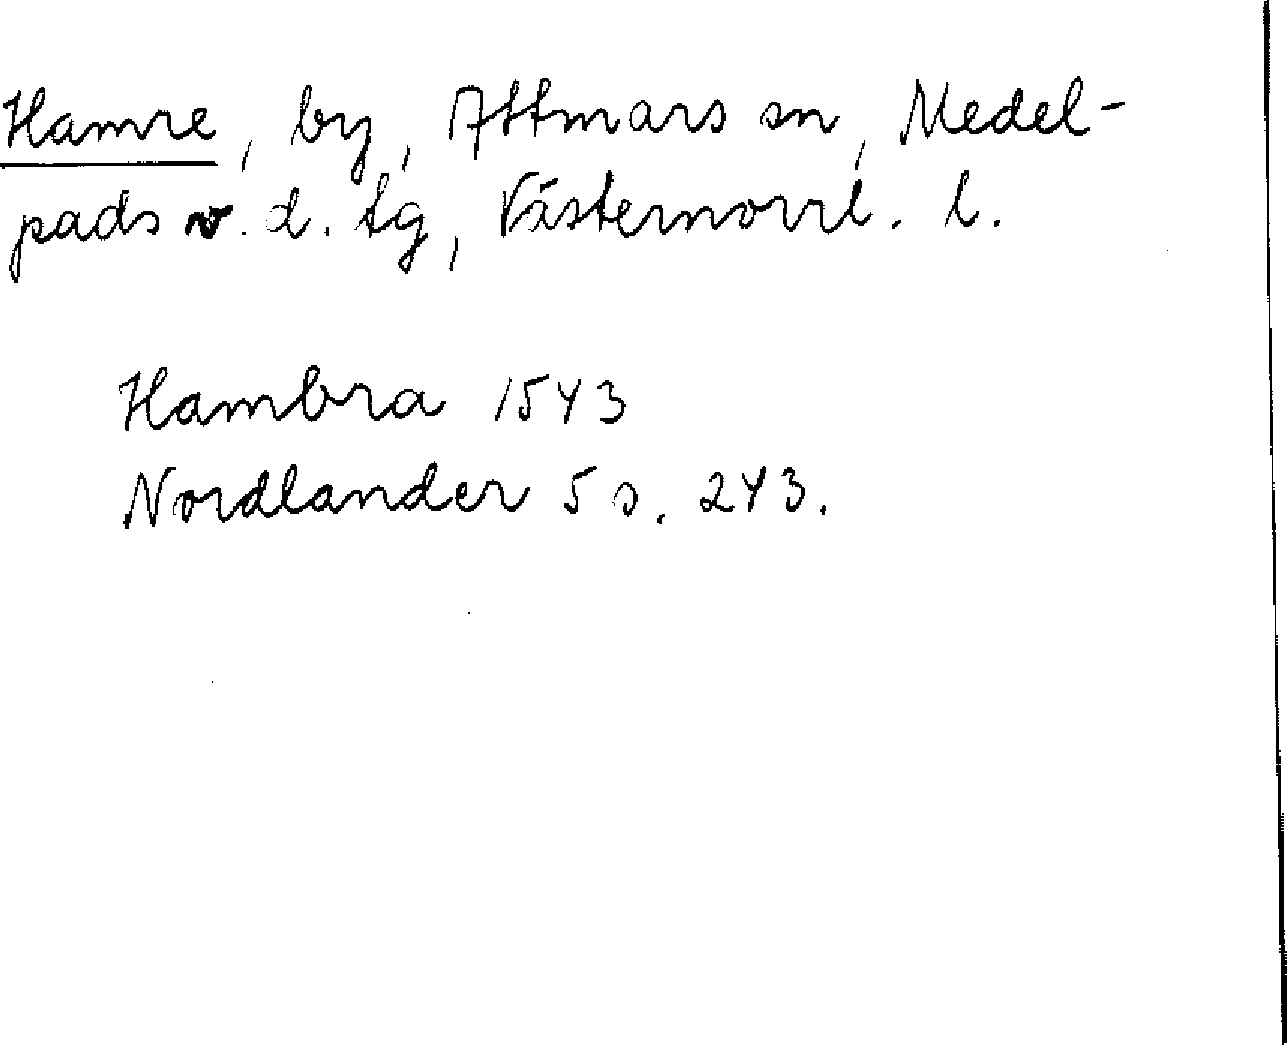 Hamre, by, Attmars sn, Medel-
pads v. d. tg, Västernorrl. l.
Hambra 1543
Nordlander 5 s. 243.